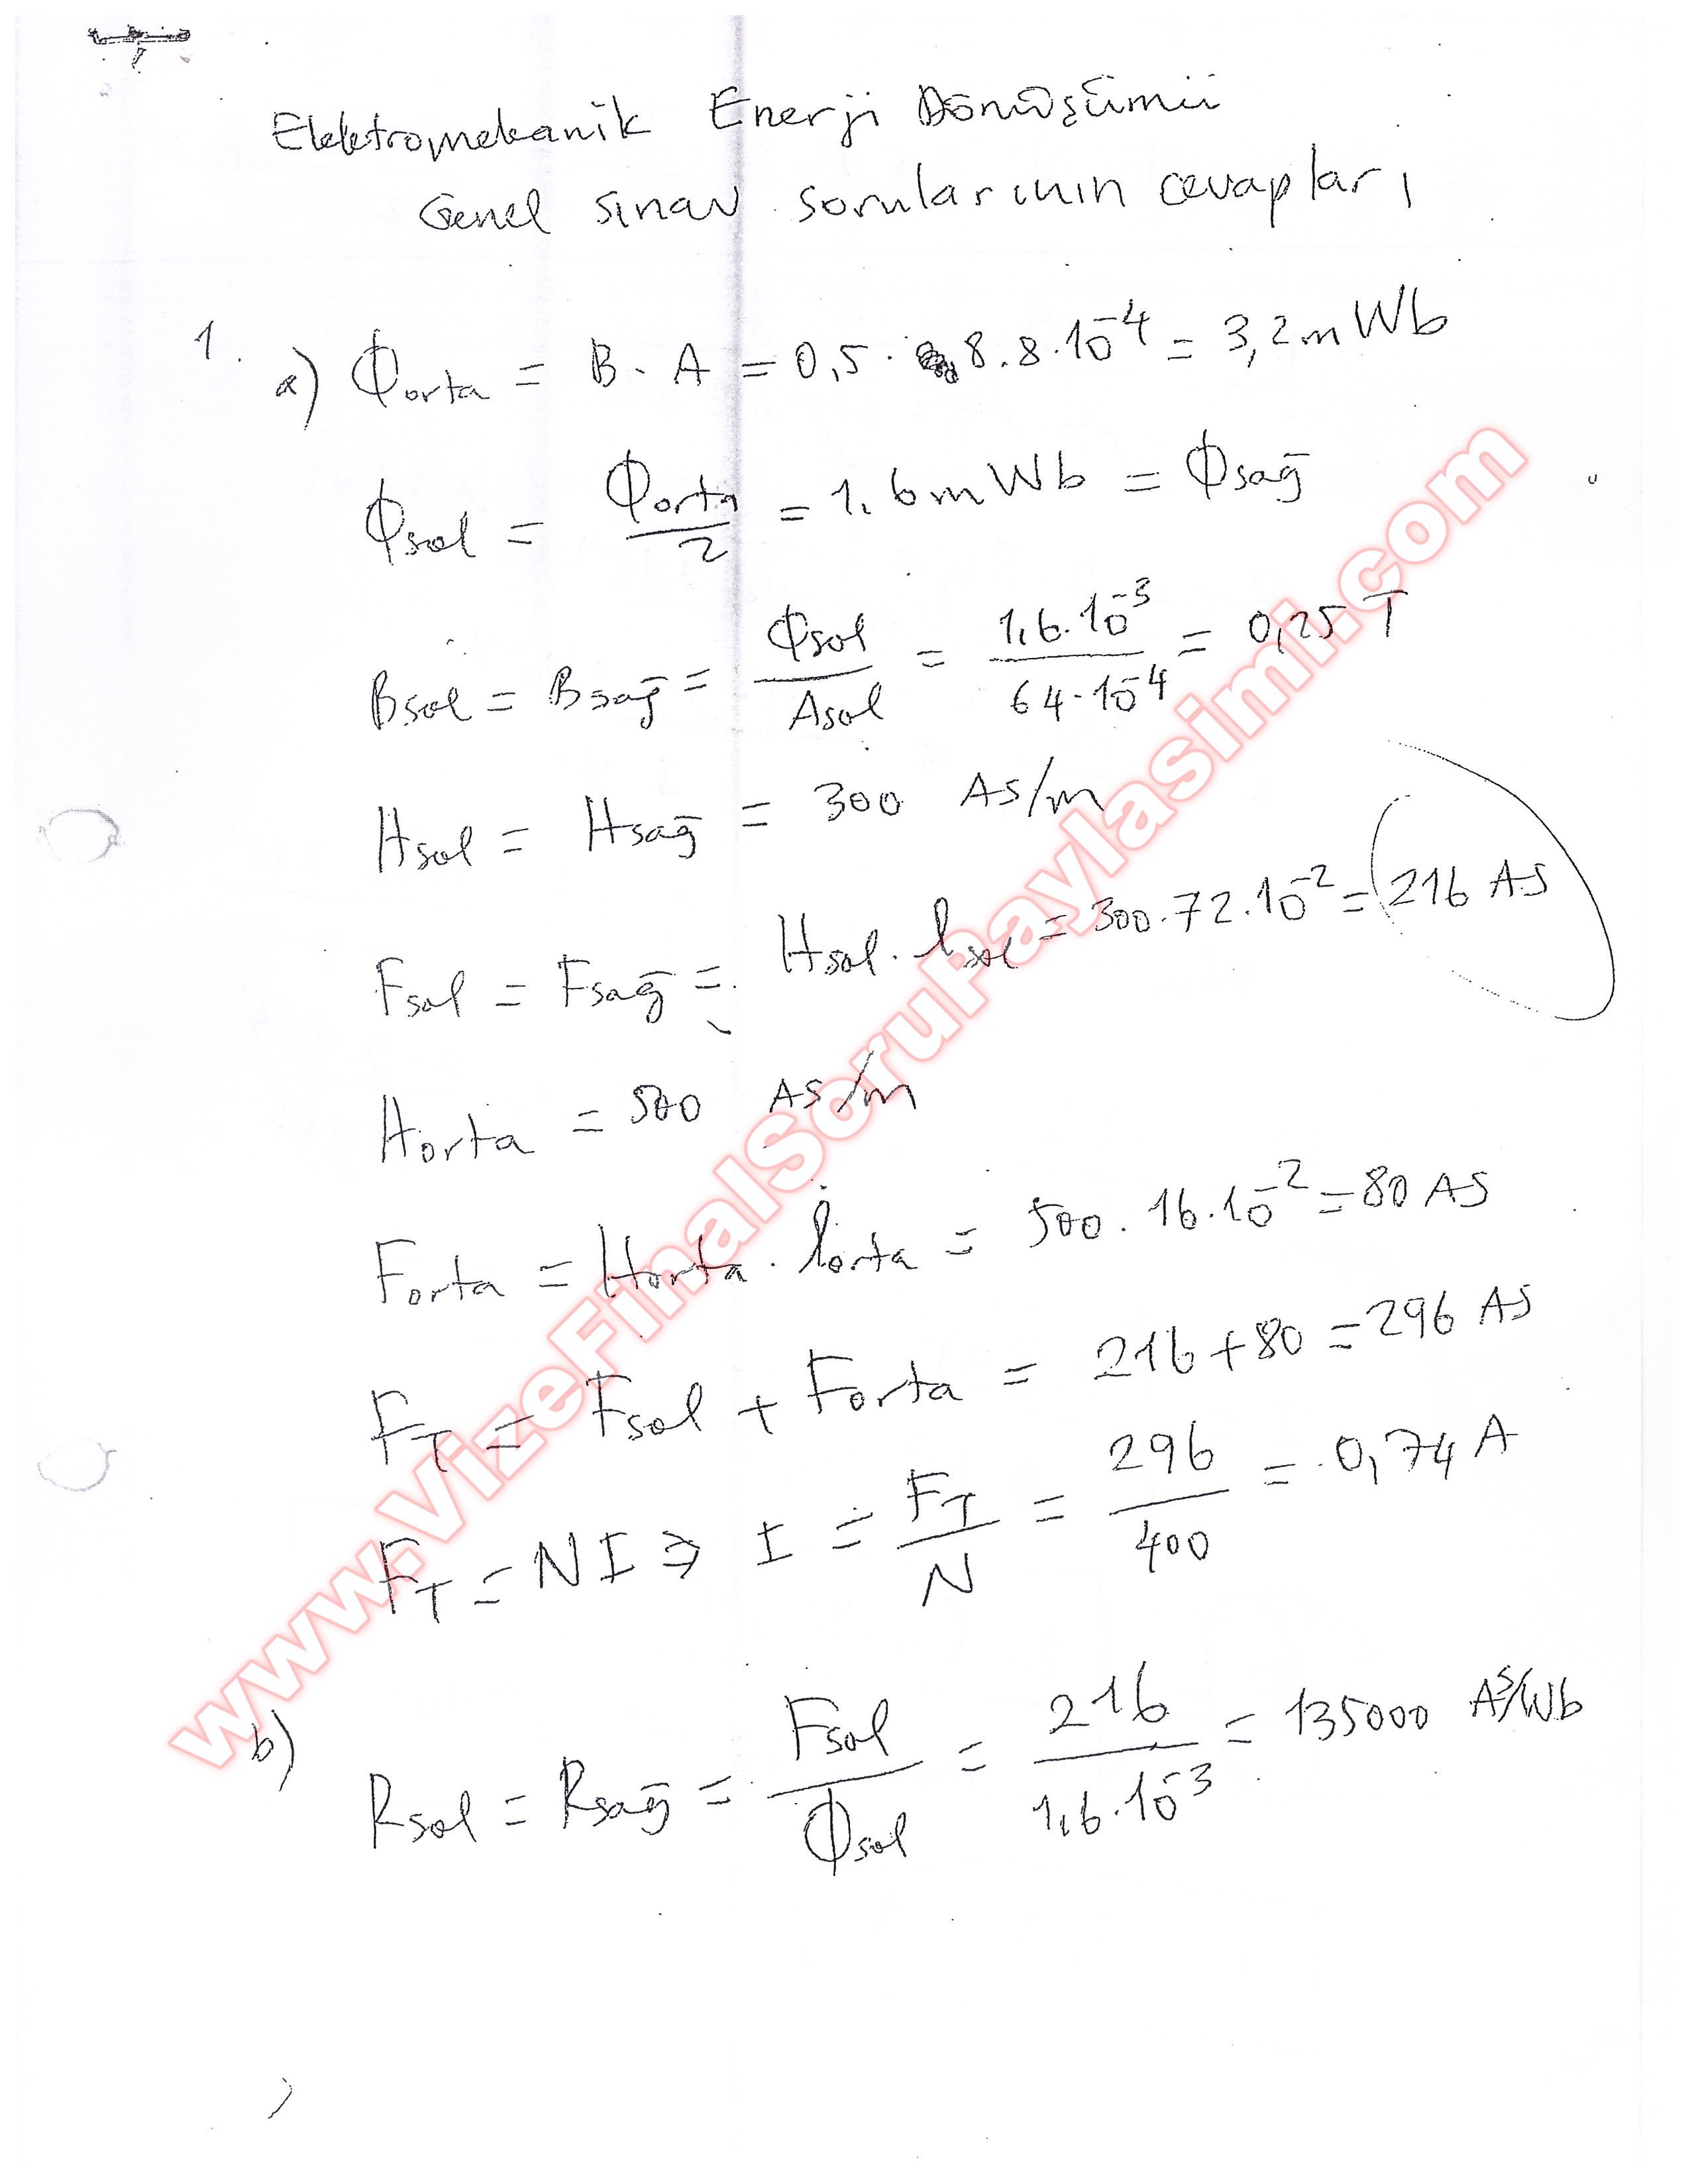 Elektromekanik Enerji Dönüşümü
Genel sınav sorularının cevapları
1. a) Φorta = B . A = 0,5 . 8.8.10^-4 = 3,2 m Wb
Φsol = Φorta / 2 = 1,6 m Wb = Φsağ
Bsol = Bsağ = Φsol / Asol = 1,6.10^-3 / 64.10^-4 = 0,25 T
Hsol = Hsağ = 300 AS/m
Fsol = Fsağ = Hsol . lsol = 300.72.10^-2 = 216 AS
Horta = 500 AS/m
Forta = Horta . lorta = 500 . 16.10^-2 = 80 AS
FT = Fsol + Forta = 216 + 80 = 296 AS
FT = NI ⇒ I = FT / N = 296 / 400 = 0,74 A
b) Rsol = Rsağ = Fsol / Φsol = 216 / 1,6.10^-3 = 135000 AS/Wb
www.VizeFinalSoruPaylasimi.com